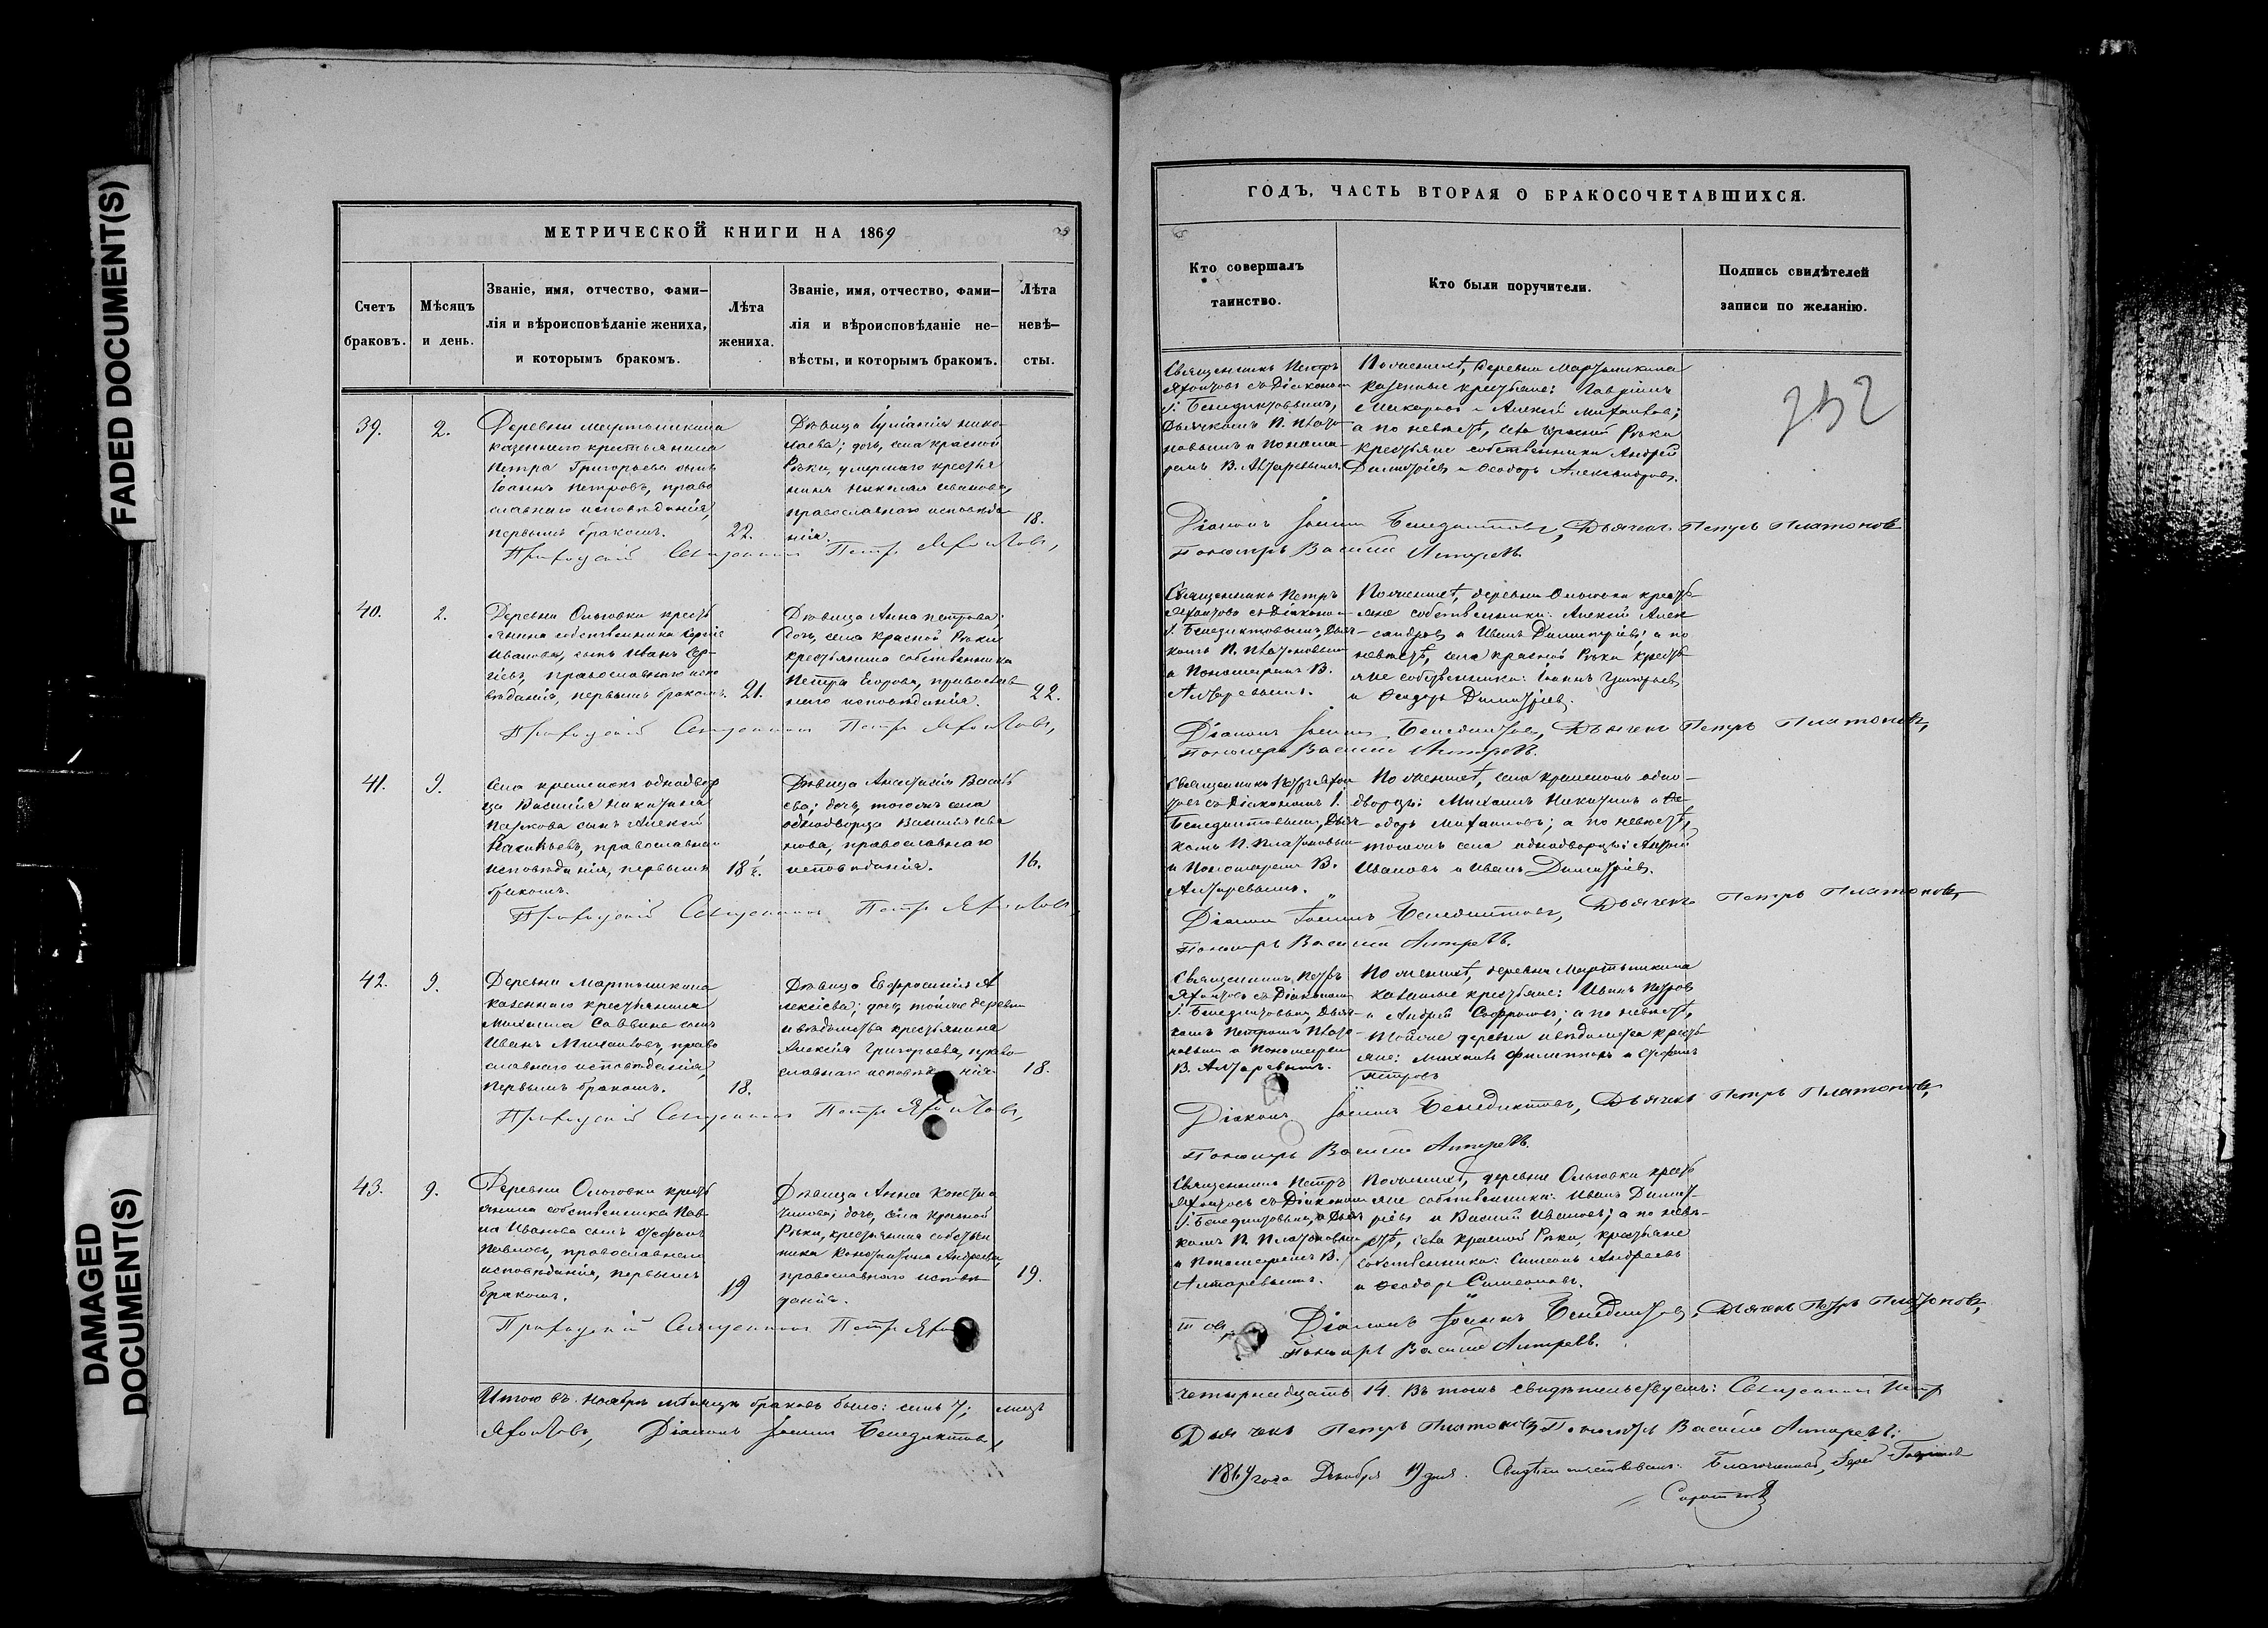 FADED DOCUMENT(S)
DAMAGED
DOCUMENT(S)
МЕТРИЧЕСКОЙ КНИГИ НА 1869
Счетъ
браковъ.
Мѣсяцъ
и день.
Званіе, имя, отчество, фами—
лія и вѣроисповѣданіе жениха,
и которымъ бракомъ.
Лѣта
жениха.
Званіе, имя, отчество, фами—
лія и вѣроисповѣданіе не—
вѣсты, и которымъ бракомъ.
Лѣта
невѣ—
сты.
39.
2.
Деревни Мартышкина
казеннаго крестьянина
Петра Григорьева сынъ
Іоаннъ Петровъ, право
славнаго исповѣданія,
первымъ бракомъ.
22.
Дѣвица Іуліанія Нико
лаева; дочь, села Красной
Рѣки, умершаго крестья
нина Николая Иванова,
православнаго исповѣда
нія.
18.
Приходскій Священникъ Петръ
40.
2.
Деревни Ольговки кресть
янина собственника Сергіе
Иванова, сынъ Иванъ Сер-
гіевъ, православнаго испо
вѣданія, первымъ бракомъ.
21.
Дѣвица Анна Петрова;
дочь, села Красной Рѣки
крестьянина собственника
Петра Егорова, православ
наго исповѣданія.
22.
Приходскій Священникъ Петръ
41.
9.
Села однодвор
ца Василія Никитина
сынъ Алексій
Васильевъ, православнаго
исповѣданія, первымъ
бракомъ.
18 ½.
Дѣвица Анастасія Василь
ева; дочь, тогожъ села
однодворца Василія Ива
нова, православнаго
исповѣданія.
16.
Приходскій Священникъ Петръ
42.
9.
Деревни Мартышкина
казеннаго крестьянина
Михаила Саввина сынъ
Иванъ Михаиловъ, право
славнаго исповѣданія,
первымъ бракомъ.
18.
Дѣвица Евфросинія А
лексіева; дочь, тойже деревни
и вѣдомства крестьянина
Алексія Григорьева, право
славнаго исповѣ нія.
18.
Приходскій Священникъ Петръ
43.
9.
Деревни Ольговки кресть
янина собственника Пав
ла Иванова сынъ Стефанъ
Павловъ, православнаго
исповѣданія, первымъ
бракомъ.
19
Дѣвица Анна Констан
тинова; дочь, села Красной
Рѣки, крестьянина собствен
ника Константина Андреева,
православнаго исповѣ
данія.
19.
Приходскій Священникъ Петръ
Итого въ Ноябрѣ мѣсяцѣ браковъ было: семь 7; лицъ
Діаконъ Іоаннъ Бенедиктовъ,
ГОДЪ, ЧАСТЬ ВТОРАЯ О БРАКОСОЧЕТАВШИХСЯ.
Кто совершалъ
таинство.
Кто были поручители.
Подпись свидѣтелей
записи по желанію.
252
Священникъ Петръ
съ Діакономъ
І. Бенедиктовымъ,
Дьячкомъ П. Плато
новымъ и Понома
ремъ В.
По женихѣ, деревни Мартышкина
казенные крестьяне: Гавріилъ
и Алексій Михаиловъ;
а по невѣстѣ, села Красной Рѣки
крестьяне собственники Андрей
Димитріевъ и Ѳеодоръ Александровъ.
Діаконъ Іоаннъ Бенедиктовъ, Дьячекъ Петръ Платоновъ
Пономарь Василій
Священникъ Петръ
съ Діаконом
І. Бенедиктовымъ, Дьяч
комъ П. Платоновымъ
и Пономаремъ В.
По женихѣ, деревни Ольговки кресть-
яне собственники: Алексій Алек
сандровъ и Иванъ Димитріевъ; а по
невѣстѣ, села Красной Рѣки кресть
яне собственники: Іоаннъ Григорьевъ
и Ѳеодоръ Димитріевъ.
Діаконъ Іоаннъ Бенедиктовъ, Дьячекъ Петръ Платоновъ,
Пономарь Василій
Священникъ Петръ
съ Діакономъ І.
Бенедиктовымъ, Дьяч
комъ П. Платоновым
и Пономаремъ В.
По женихѣ, села одно-
дворцы: Михаилъ Никитинъ и Ѳе-
одоръ Михаиловъ; а по невѣстѣ,
тогожъ села однодворцы:
Ивановъ и Иванъ Димитріевъ.
Діаконъ Іоаннъ Бенедиктовъ, Дьячекъ Петръ Платоновъ,
Пономарь Василій
Священникъ Петръ
съ Діакономъ
І. Бенедиктовымъ, Дьяч-
комъ Петромъ Плато
новымъ и Пономаремъ
В.
По женихѣ, деревни Мартышкина
казенные крестьяне: Иванъ Петровъ
и Андрей а по невѣстѣ,
тойже деревни и вѣдомства кресть
яне: Михаилъ Филипповъ и Стефанъ
Петровъ
Діаконъ Іоаннъ Бенедиктовъ, Дьячекъ Петръ Платоновъ,
Пономарь Василій
Священникъ Петръ
съ Діакономъ
І. Бенедиктовымъ, Дьяч
комъ П. Платоновым
и Пономаремъ В.
По женихѣ, деревни Ольговки кресть
яне собственники: Иванъ Димит-
ріевъ и Василій Ивановъ; а по невѣ-
стѣ, села Красной Рѣки, крестьяне
собственники: Симеонъ Андреевъ
и Ѳеодоръ Симеоновъ.
товъ, Діаконъ Іоаннъ Бенедиктовъ, Дьячекъ Петръ Платоновъ,
Пономарь Василій
четырнадцать 14. Въ томъ свидѣтельствуемъ: Священникъ Петръ
Дьячекъ Петръ Платоновъ Пономарь Василій
1869 года Декабря 19 дня. Свидѣтельствовалъ: Благочинный, Іерей